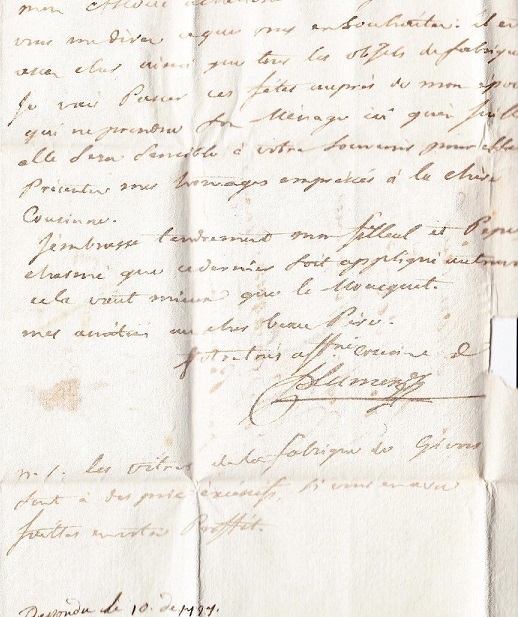 mon
vous me direz ce que vous en Souhaitez. il en
assez cher ainsi que tous les objets de fabrique
Je vais Passer ces fêtes auprès de mon épou
qui ne prendra son Ménage ici qu'en Juill
elle Sera Sensible à votre Souvenir pour elle
Présentez mes homages empressés à la chère
Cousinne.
J'embrasse tendrement mon filleul et Pepe
charmé que ce dernier Soit appliqué
cela vaut mieux que le Mousquet.
mes amitiés au cher beau Père.
Votre très affné cousin
n. f. les vitres de la fabrique de Givors
Sont à des prix excésifs, Si vous en avez
faittes en votre Proffit.
Repondu le 10. de